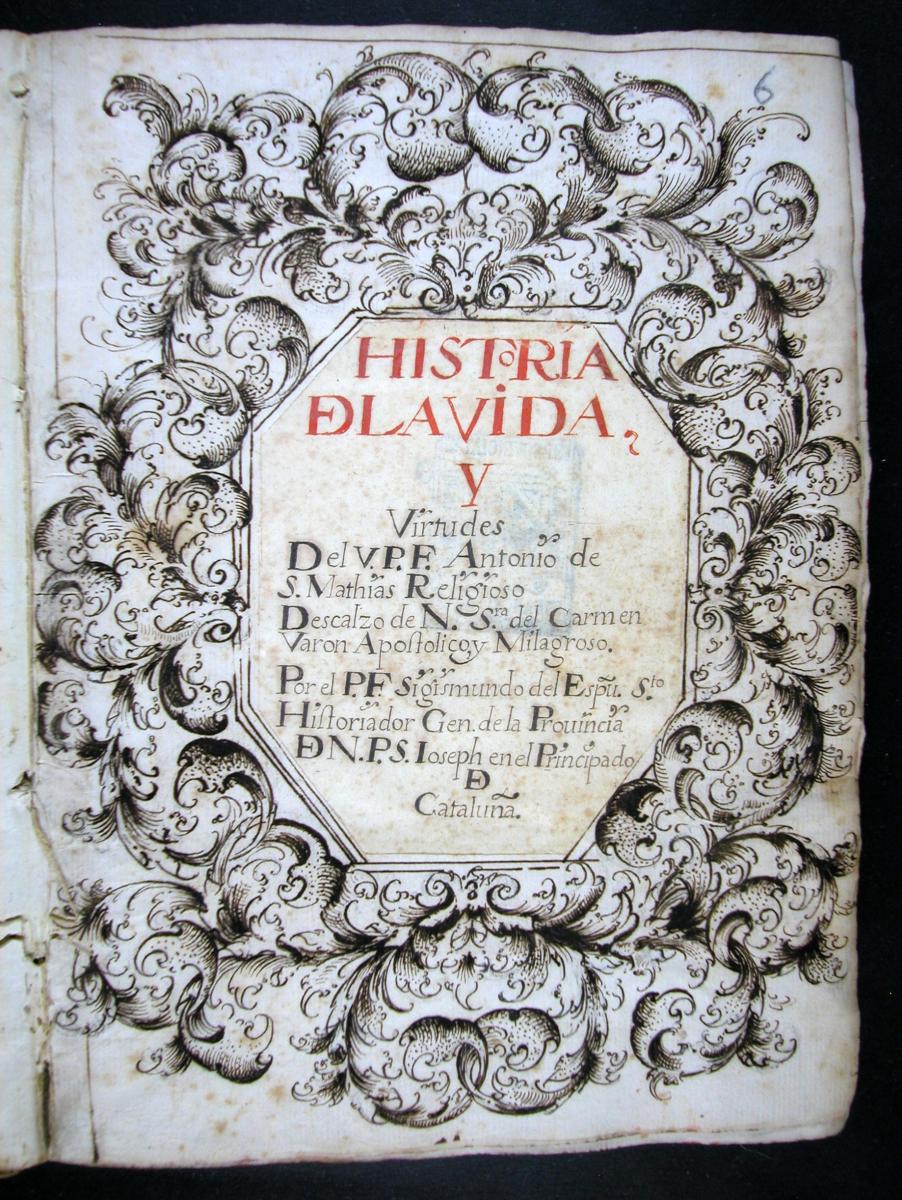 6
HISTORIA
DE LA VIDA,
y
Virtudes
Del V.P.F. Antonio de
S. Mathias Religioso
Descalzo de N.ª S.ra del Carmen
Varon Apostolico y Milagroso.
Por el P.F. Sigismundo del Espũ. S.to
Historiador Gen. de la Prouincia
DE N.P.S. Ioseph en el Principado
DE
Cataluña.